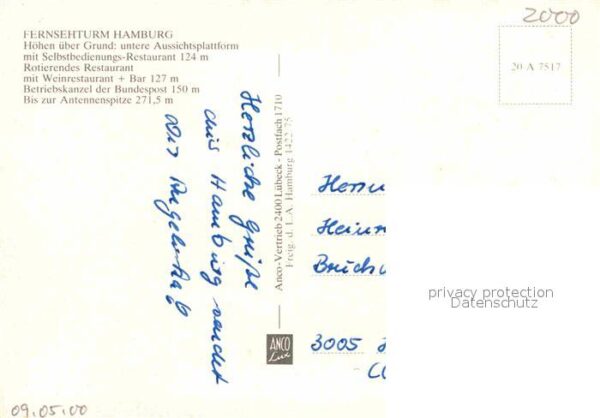 FERNSEHTURM HAMBURG
Höhen über Grund: untere Aussichtsplattform
mit Selbstbedienungs-Restaurant 124 m
Rotierendes Restaurant
mit Weinrestaurant + Bar 127 m
Betriebskanzel der Bundespost 150 m
Bis zur Antennenspitze 271,5 m
2000
20 A 7517
Herzliche Grüße
aus Hamburg sendet
Anco-Vertrieb 2400 Lübeck - Postfach 1710
Freig. d. L.A. Hamburg 1422/75
ANCO
Lux
Herrn
Heinr
Bruch
3005
privacy protection
Datenschutz
09.05.00